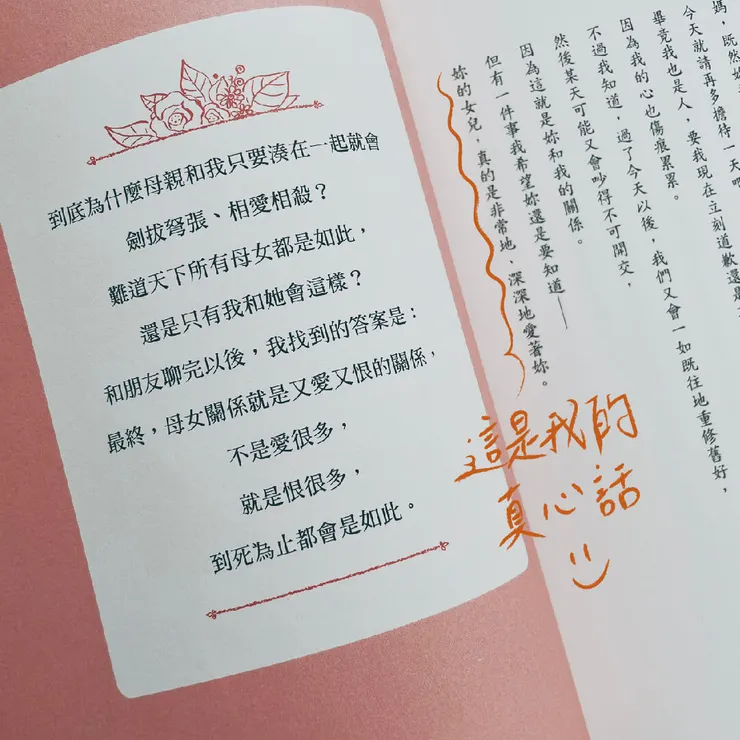 到底為什麼母親和我只要湊在一起就會
劍拔弩張、相愛相殺？
難道天下所有母女都是如此，
還是只有我和她會這樣？
和朋友聊完以後，我找到的答案是：
最終，母女關係就是又愛又恨的關係，
不是愛很多，
就是恨很多，
到死為止都會是如此。
媽，既然
今天就請再多擔待一天
畢竟我也是人，要我現在立刻道歉還是
因為我的心也傷痕累累。
不過我知道，過了今天以後，我們又會一如既往地重修舊好，
然後某天可能又會吵得不可開交，
因為這就是妳和我的關係。
但有一件事我希望妳還是要知道——
妳的女兒，真的是非常地，深深地愛著妳。
這是我的
真心話